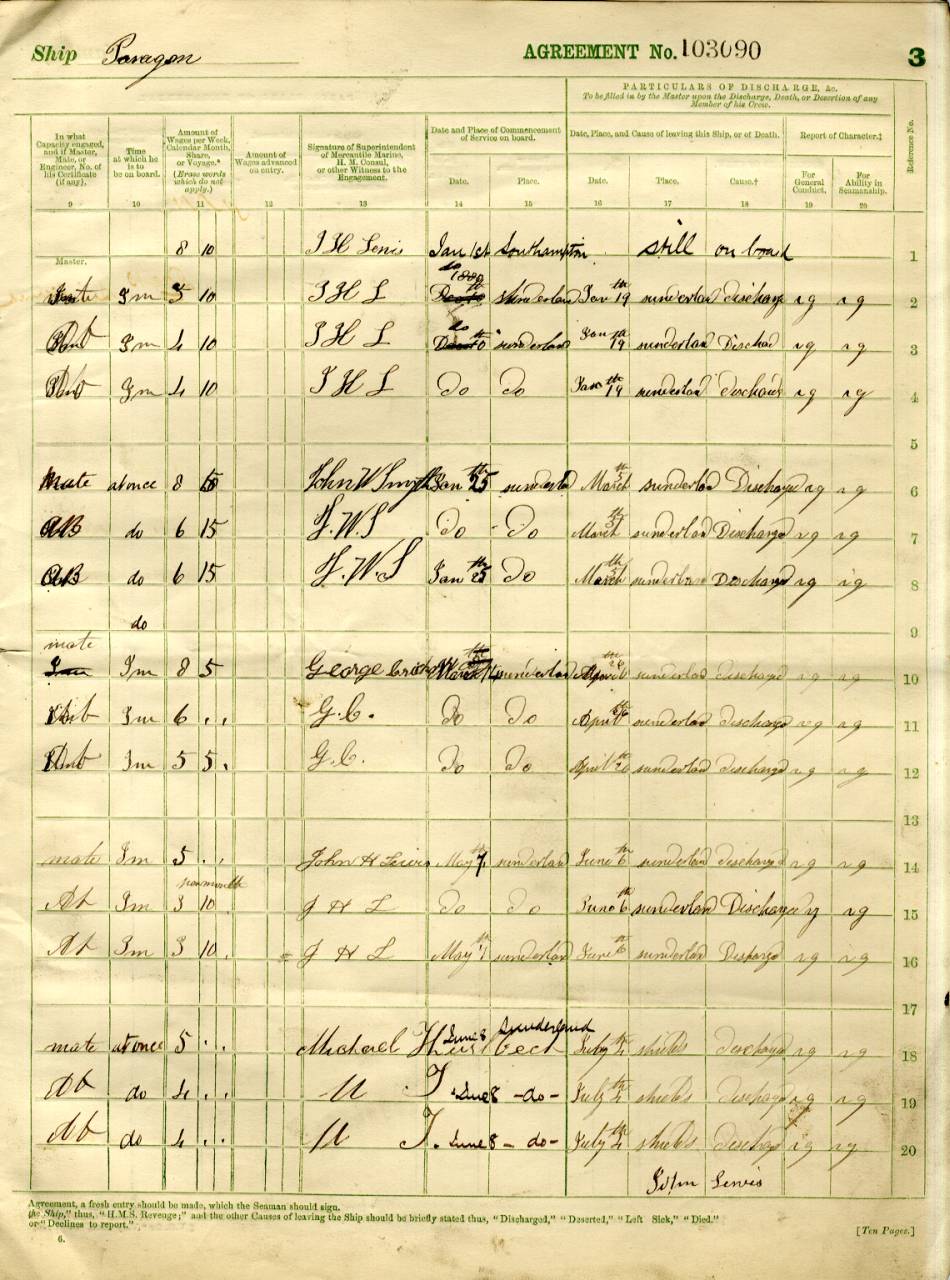 Ship Paragon AGREEMENT No. 103090 3
PARTICULARS OF DISCHARGE, &c.
To be filled in by the Master upon the Discharge, Death, or Desertion of any
Member of his Crew.
In what Capacity engaged, and if Master, Mate, or Engineer, No. of his Certificate (if any).
Time at which he is to be on board.
Amount of Wages per Week, Calendar Month, Share, or Voyage.* (Erase words which do not apply.)
Amount of Wages advanced on entry.
Signature of Superintendent of Mercantile Marine, H. M. Consul, or other Witness to the Engagement.
Date and Place of Commencement of Service on board.
Date, Place, and Cause of leaving this Ship, or of Death.
Report of Character.‡
Reference No.
Date. Place. Date. Place. Cause.† For General Conduct. For Ability in Seamanship.
9 10 11 12 13 14 15 16 17 18 19 20
8 10 J H Lewis Jan 1st Southampton still on board 1
Master.
do
5 10 J H L sunderland Jan 19 sunderland discharge vg vg 2
do
4 10 J H L sunderland Jan th 19 sunderland Dischad vg vg 3
4 10 J H L Do Do Jan th 19 sunderland vg vg 4
5
mate at once 8 John W Smyth Jan th 25 sunderlad March th 5 sunderlad Discharge vg vg 6
AB do 6 15 J. W. S Do Do March th 5 sunderland Discharge vg vg 7
AB do 6 15 J. W. S Jan th 25 Do March th 5 sunderland Discharge vg vg 8
do 9
mate
8 5 George sunderland April sunderland discharge vg vg 10
6 . . G. C. Do Do April sunderland discharge vg vg 11
5 5. G. C. Do Do April sunderland discharge vg vg 12
13
mate 5 . . John H Lewis May th 7 sunderland June th 6 sunderland discharge vg vg 14
per month
Ab 3 10 J H L Do Do June th 6 sunderland Discharge vg vg 15
Ab 3 10. J H L May th 7 sunderland June th 6 sunderland Discharge vg vg 16
17
Sunderland
mate at once 5 . . Michael June 8 July th 4 shields discharge vg vg 18
Ab do 4 . . M T June 8 - do - July th 4 shields discharge vg vg 19
Ab do 4 . . M T. June 8 - do - July th 4 shields discharge vg vg 20
John Lewis
Agreement, a fresh entry should be made, which the Seaman should sign.
the Ship," thus, "H.M.S. Revenge;" and the other Causes of leaving the Ship should be briefly stated thus, "Discharged," "Deserted," "Left Sick," "Died."
or "Declines to report."
[Ten Pages.]
6.